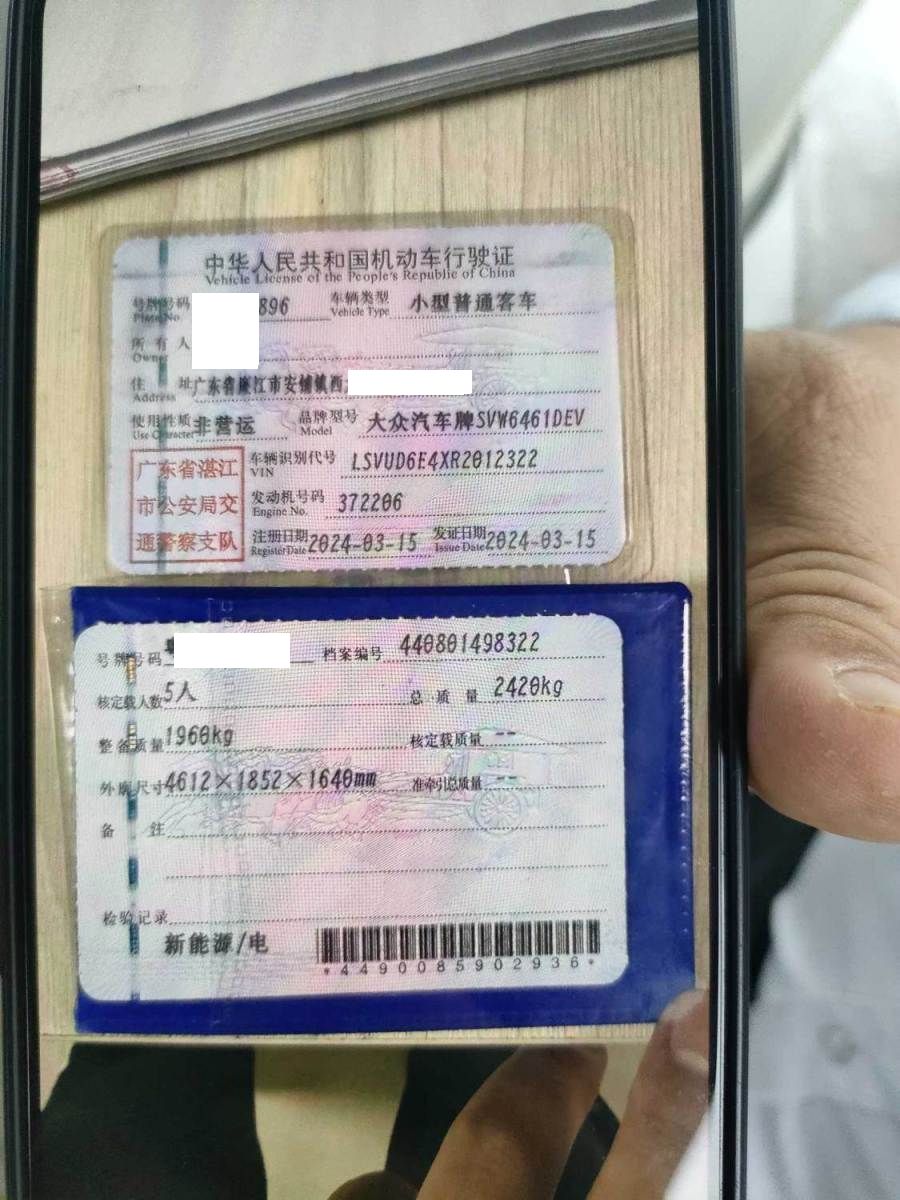 中华人民共和国机动车行驶证
Vehicle License of the People's Republic of China
号牌号码 896 车辆类型 小型普通客车
Plate No. Vehicle Type
所有人
Owner
住址 广东省廉江市安铺镇西
Address
使用性质 非营运 品牌型号 大众汽车牌SVW6461DEV
Use Character Model
广东省湛江
市公安局交
通警察支队
车辆识别代号 LSVUD6E4XR2012322
VIN
发动机号码 372206
Engine No.
注册日期 2024-03-15 发证日期 2024-03-15
Register Date Issue Date
号牌号码 档案编号 440801498322
核定载人数 5人 总质量 2420kg
整备质量 1960kg 核定载质量 --
外廓尺寸 4612×1852×1640mm 准牵引总质量 --
备注
检验记录
新能源/电
*4490085902936*